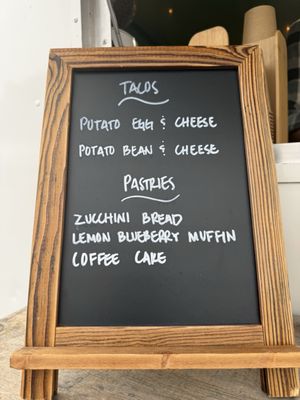 TACOS
POTATO EGG & CHEESE
POTATO BEAN & CHEESE
PASTRIES
ZUCCHINI BREAD
LEMON BLUEBERRY MUFFIN
COFFEE CAKE